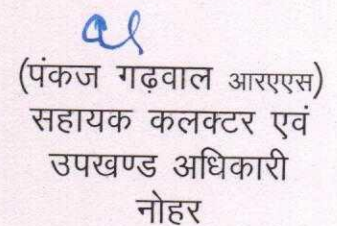 (पंकज गढ़वाल आरएएस)
सहायक कलक्टर एवं
उपखण्ड अधिकारी
नोहर